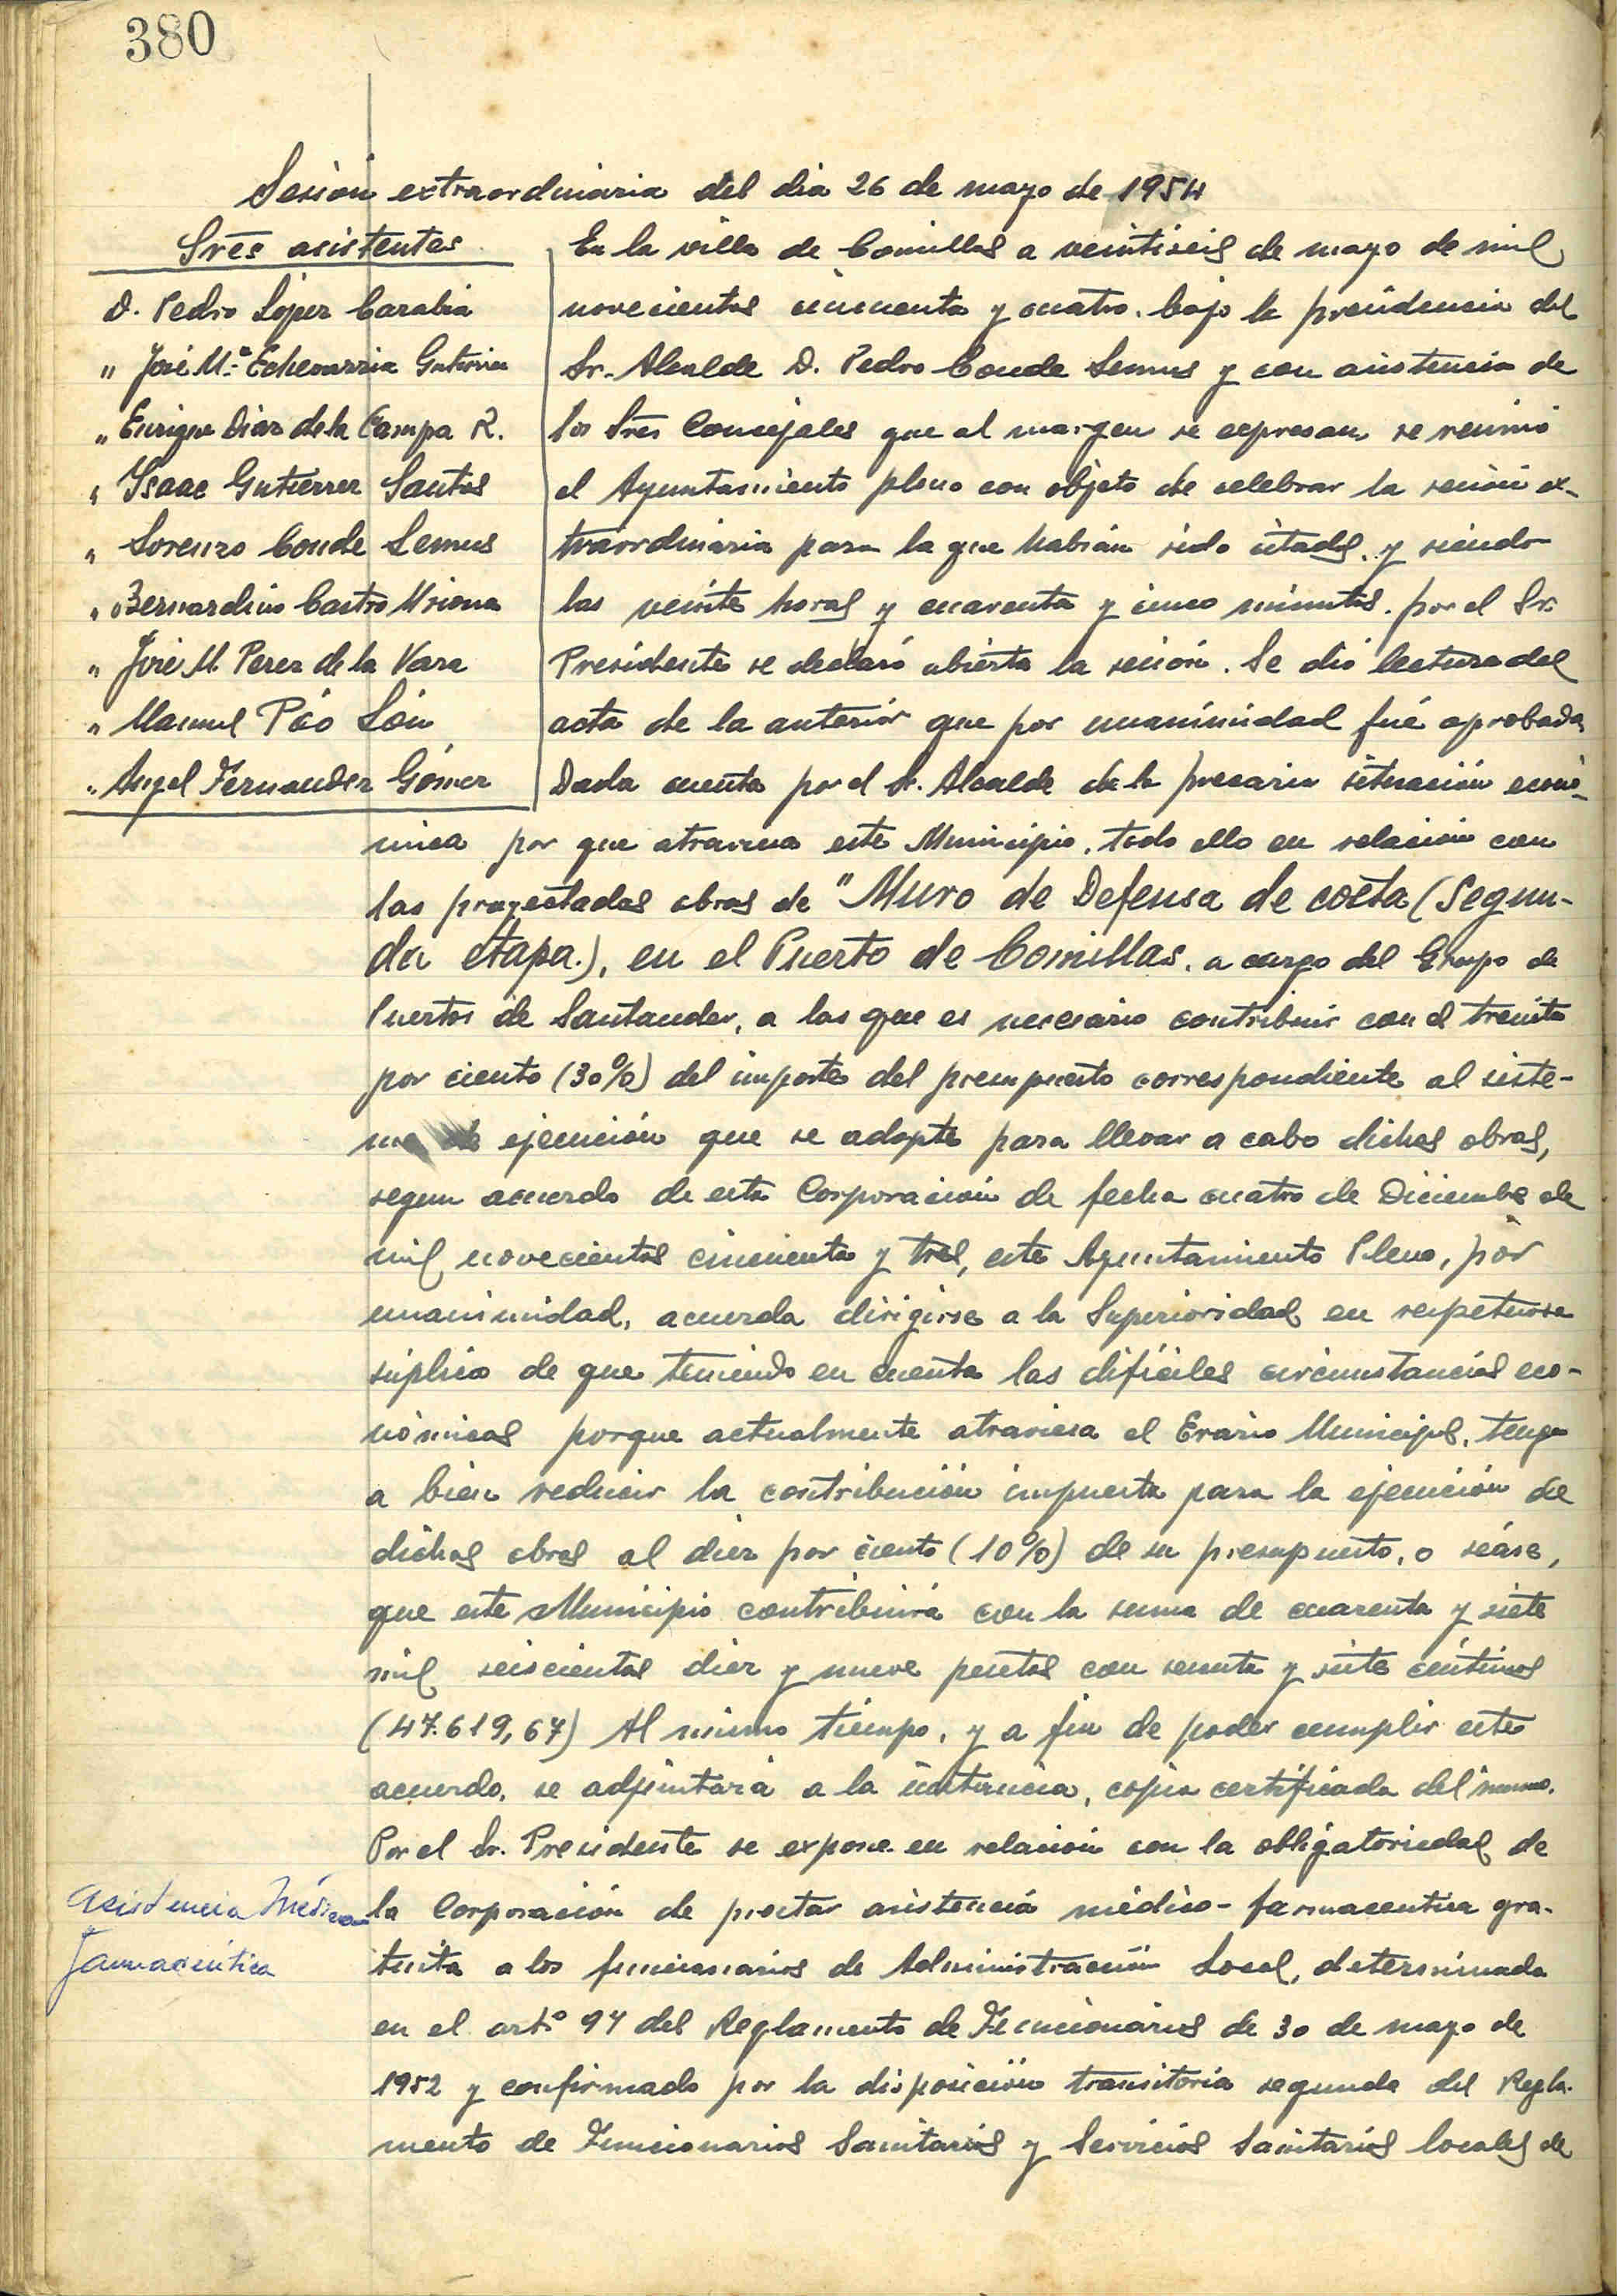 380
Sesión extraordinaria del dia 26 de mayo de 1954
Sres asistentes
D. Pedro López Carabia
" José Mª Echevarria Gutierrez
" Enrique Diaz de la Campa R.
" Isaac Gutierrez Santos
" Lorenzo Conde Lemus
" Bernardino Castro
" José M. Perez de la Vara
" Manuel Pío
" Angel Fernandez Gómez
En la villa de Comillas a veintiseis de mayo de mil
novecientos cincuenta y cuatro, bajo la presidencia del
Sr. Alcalde D. Pedro Conde Lemus y con asistencia de
los Sres Concejales que al margen se expresan se reunió
el Ayuntamiento pleno con objeto de celebrar la sesión ex-
traordinaria para la que habian sido citados, y siendo
las veinte horas y cuarenta y cinco minutos, por el Sr.
Presidente se declaró abierta la sesión. Se dió lectura del
acta de la anterior que por unanimidad fué aprobada
Dada cuenta por el Sr. Alcalde de la precaria situación econó-
mica por que atraviesa este Municipio, todo ello en relación con
las proyectadas obras de "Muro de Defensa de costa (Segun-
da etapa.), en el Puerto de Comillas, a cargo del Grupo de
Puertos de Santander, a las que es necesario contribuir con el treinta
por ciento (30%) del importe del presupuesto correspondiente al siste-
ma de ejecución que se adopte para llevar a cabo dichas obras,
segun acuerdo de esta Corporación de fecha cuatro de Diciembre de
mil novecientos cincuenta y tres, este Ayuntamiento Pleno, por
unanimidad, acuerda dirigirse a la Superioridad en respetuosa
súplica de que teniendo en cuenta las difíciles circunstancias eco-
nómicas porque actualmente atraviesa el Erario Municipal, tenga
a bien reducir la contribución impuesta para la ejecución de
dichas obras al diez por ciento (10%) de su presupuesto, o séase,
que este Municipio contribuirá con la suma de cuarenta y siete
mil seiscientas diez y nueve pesetas con sesenta y siete céntimos
(47.619,67) Al mismo tiempo, y a fin de poder cumplir este
acuerdo, se adjuntará a la instancia, copia certificada del mismo.
Por el Sr. Presidente se expone en relación con la obligatoriedad de
Asistencia Médico
Farmacéutica
la Corporación de prestar asistencia médico-farmaceutica gra-
tuita a los funcionarios de Administración Local, determinada
en el artº 97 del Reglamento de Funcionarios de 30 de mayo de
1952 y confirmado por la disposición transitoria segunda del Regla-
mento de Funcionarios Sanitarios y Servicios Sanitarios locales de